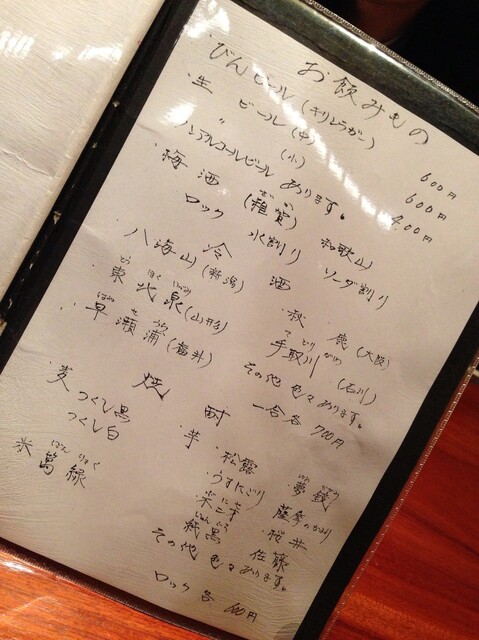 お飲みもの
・びんビール(キリンラガー) 600円
・生ビール(中) 600円
〃 (小) 400円
ノンアルコールビールあります。
・梅酒(雑賀) 和歌山
ロック 水割り ソーダ割り
冷酒
・八海山(新潟) ・秋鹿(大阪)
・東北泉(山形) ・手取川(石川)
・早瀬浦(福井) その他色々あります。
一合各700円
焼酎
麦 つくし黒 芋 ・松露 ・夢鏡
つくし白 ・うすにごり ・薩摩のかおり
米 萬緑 ・ ・桜井
・純黒 ・佐藤
その他色々あります。
ロック各 円